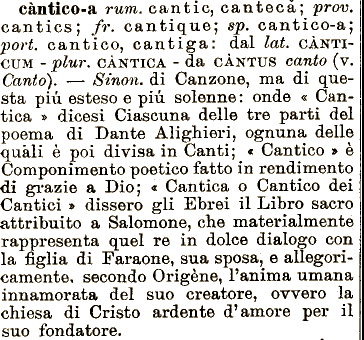 càntico-a rum. cantic, cantecă; prov.
cantics; fr. cantique; sp. cantico-a;
port. cantico, cantiga: dal lat. CÀNTI-
CUM - plur. CÀNTICA - da CÀNTUS canto (v.
Canto). — Sinon. di Canzone, ma di que-
sta piú esteso e piú solenne: onde « Can-
tica » dicesi Ciascuna delle tre parti del
poema di Dante Alighieri, ognuna delle
quàli è poi divisa in Canti; « Cantico » è
Componimento poetico fatto in rendimento
di grazie a Dio; « Cantica o Cantico dei
Cantici » dissero gli Ebrei il Libro sacro
attribuito a Salomone, che materialmente
rappresenta quel re in dolce dialogo con
la figlia di Faraone, sua sposa, e allegori-
camente, secondo Origène, l'anima umana
innamorata del suo creatore, ovvero la
chiesa di Cristo ardente d'amore per il
suo fondatore.